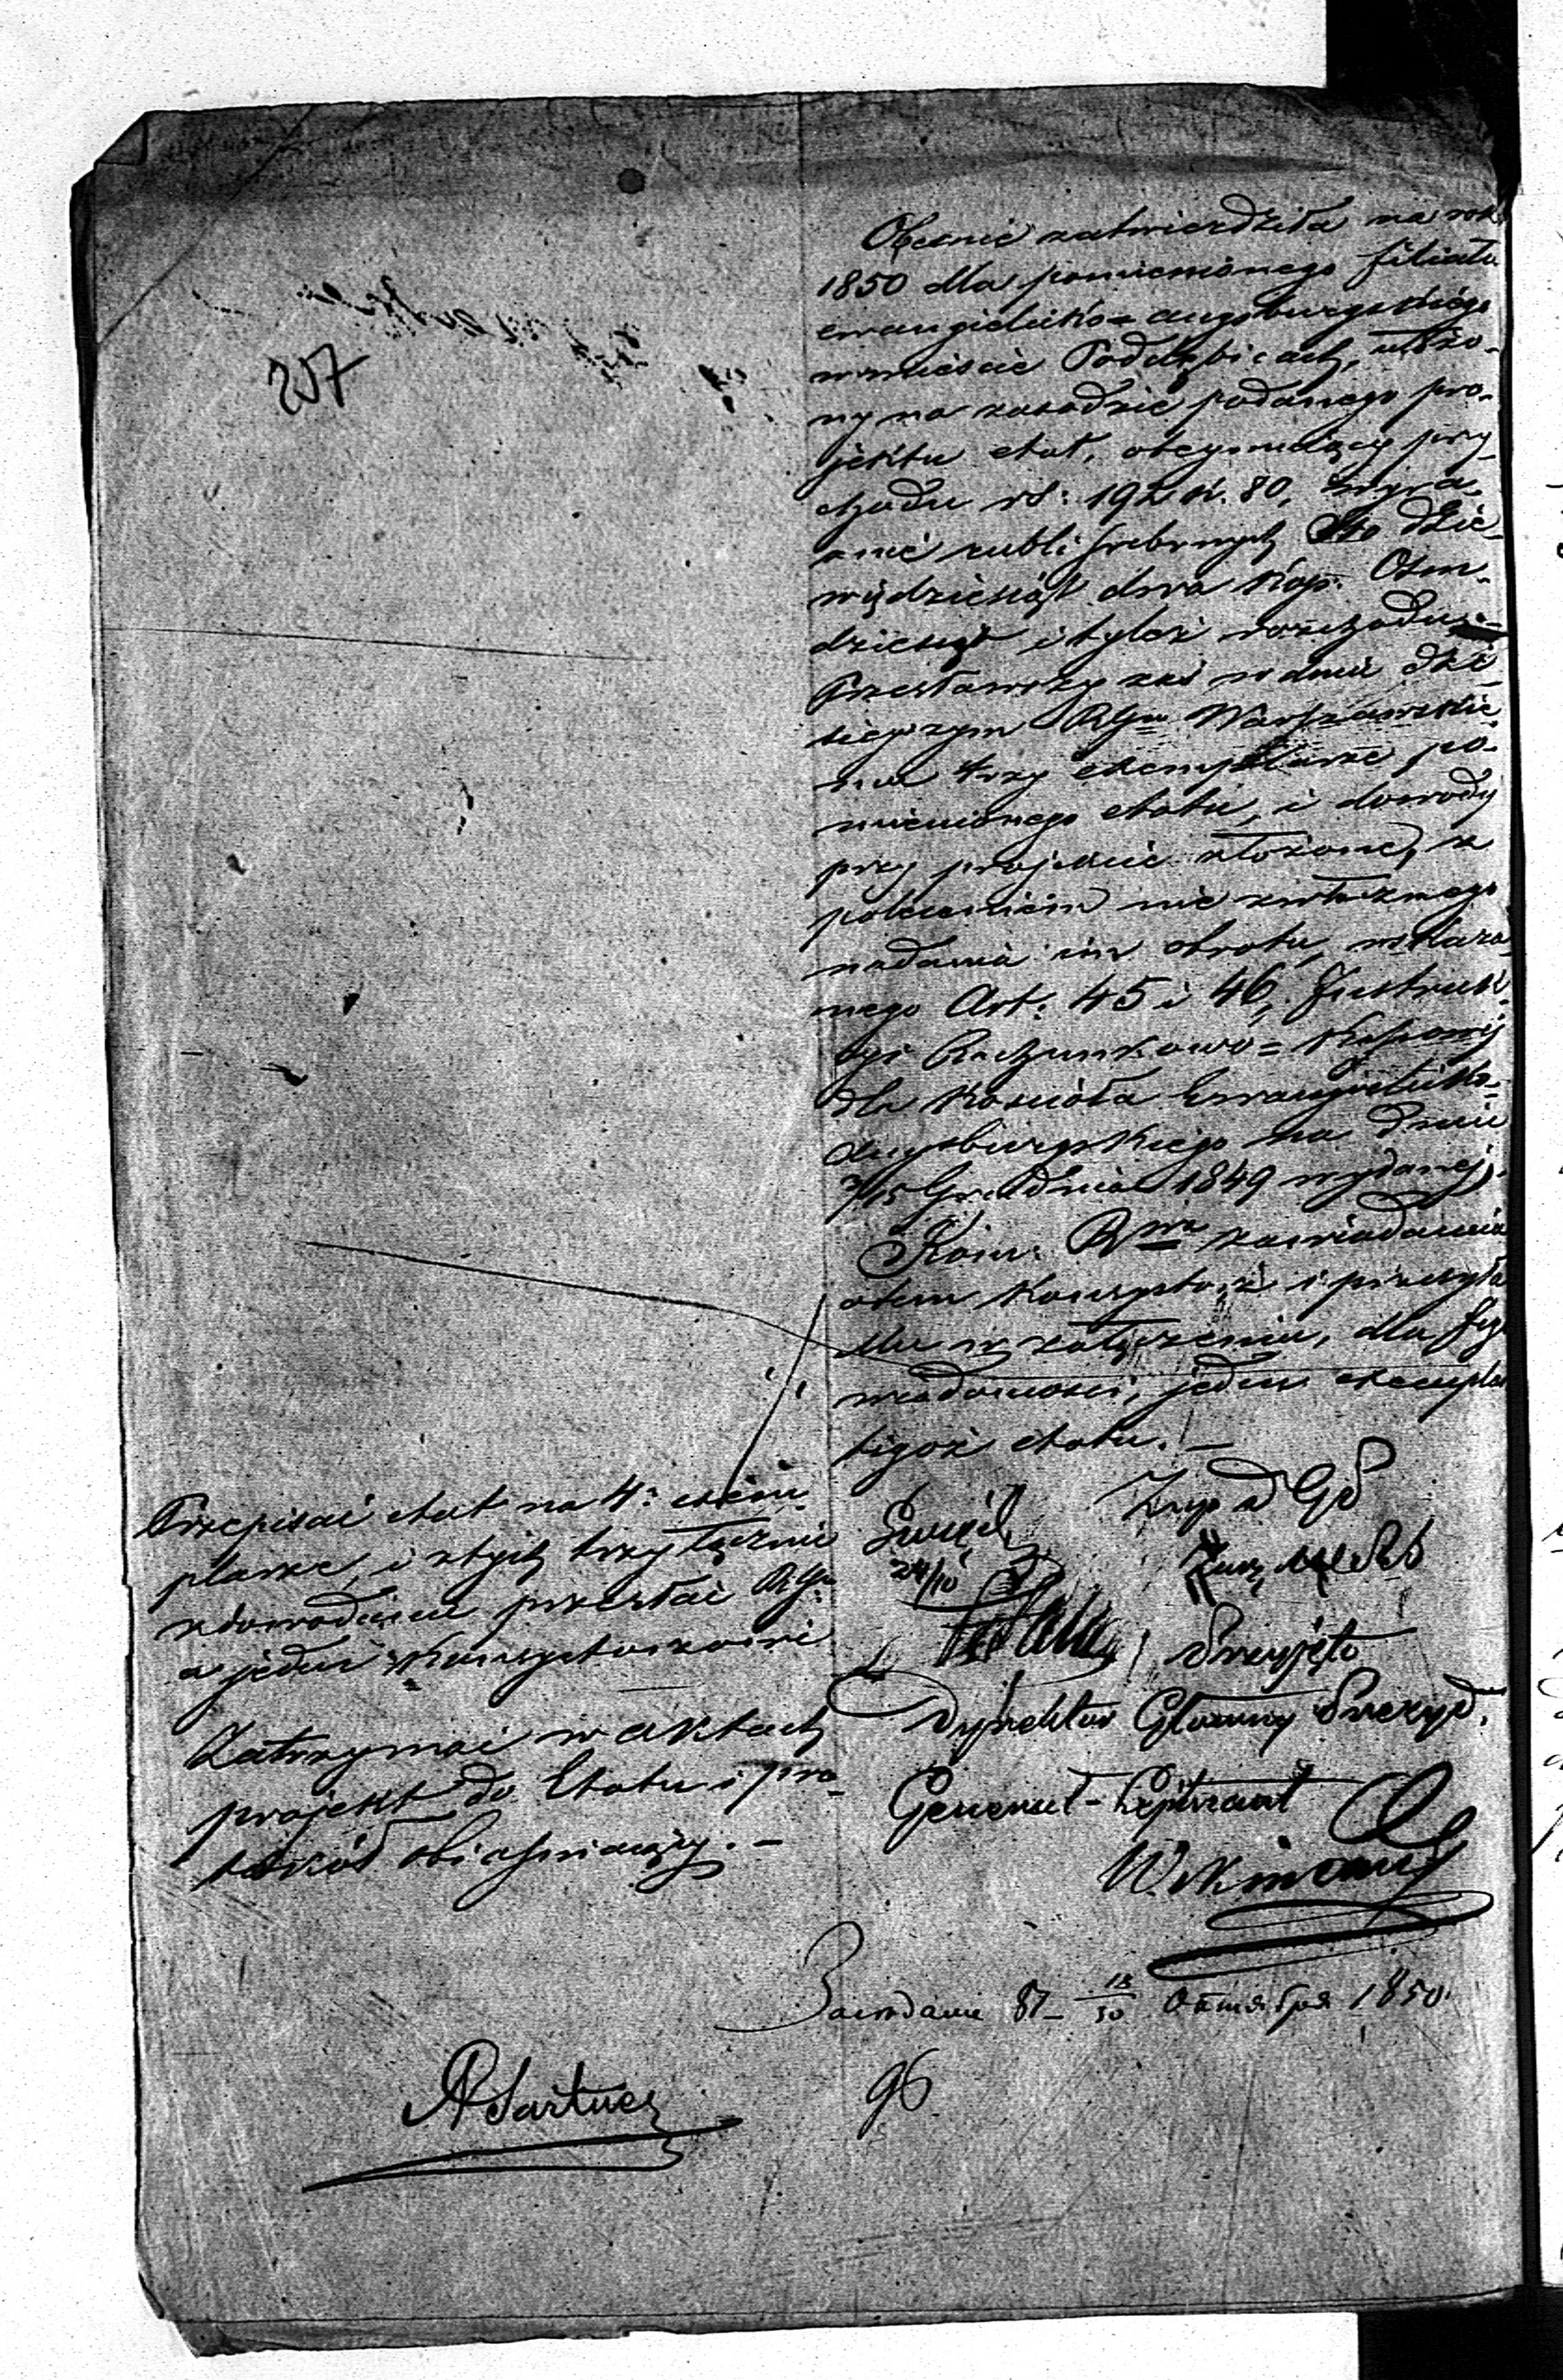 207
Obecnie zatwierdziła na rok
1850 dla pomienionego filiału
ewangielicko=augsburgskiego
w mieście Poddębicach, ułożo-
ny na zasadzie podanego pro-
jektu etat, obejmujący przy-
chodu rs: 192 k. 80, wyra-
źnie rubli srebrnych Sto dzie-
więdziesiąt dwa kop. Ośm-
dziesiąt i tyleż rozchodu.-
Przesławszy zaś w dniu dzi-
siejszym RGu Warszawskie-
mu trzy exemplarze po-
mienionego etatu, i dowody
przy projekcie złożone, z
poleceniem nie zwłocznego
nadania im obrotu, wskaza-
nego Art: 45 i 46, Instruk-
cyi Rachunkowo=Kassowej
dla Kościoła Ewangielicko-
Augsburgskiego na dniu
3/15 Grudnia 1849 wydanej.
Kom: Rwa zawiadamia
o tem Konsystorz i przesyła
Mu w załączeniu, dla Jego
wiadomości, jeden exemplarz
tegoż etatu. —
Przepisać etat na 4: exem-
plarze, i z tych trzy łącznie
z dowodami przesłać RGu
a jeden Konsystorzowi
Zatrzymać w aktach
projekt do Etatu i pro-
tokół obiaśniający. —
24/10
Przyjęto
Dyrektor Główny Prezyd.
Generał-Lejtnant
Заседание 87- 18/30 Октября 1850.
96